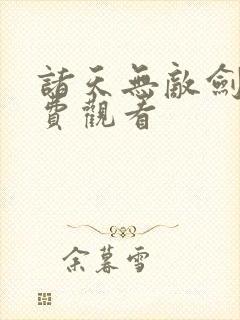 諸天無敵劍
費觀看
余暮雪